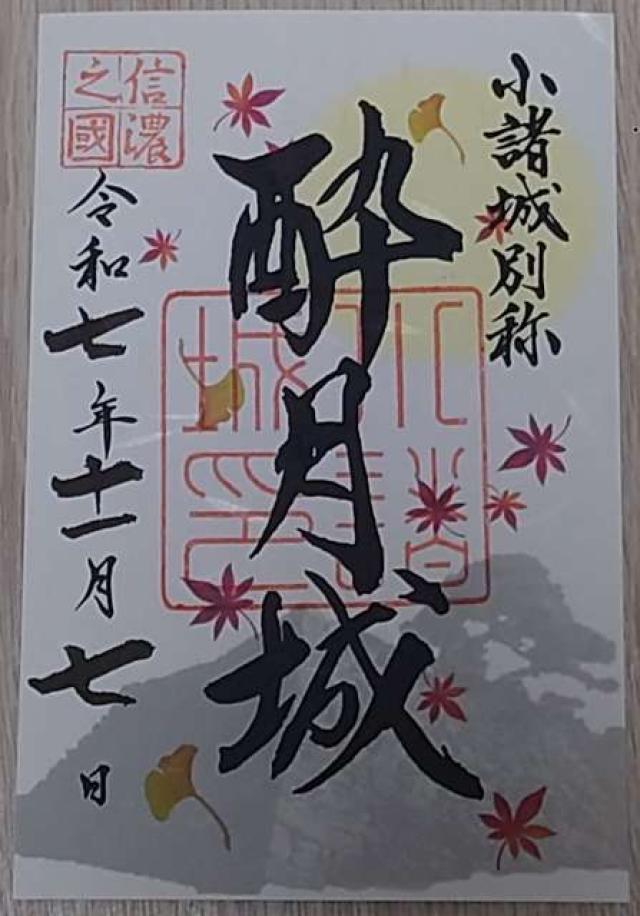 小諸城別称
酔月城
小諸城印
信濃之國
令和七年十一月七日